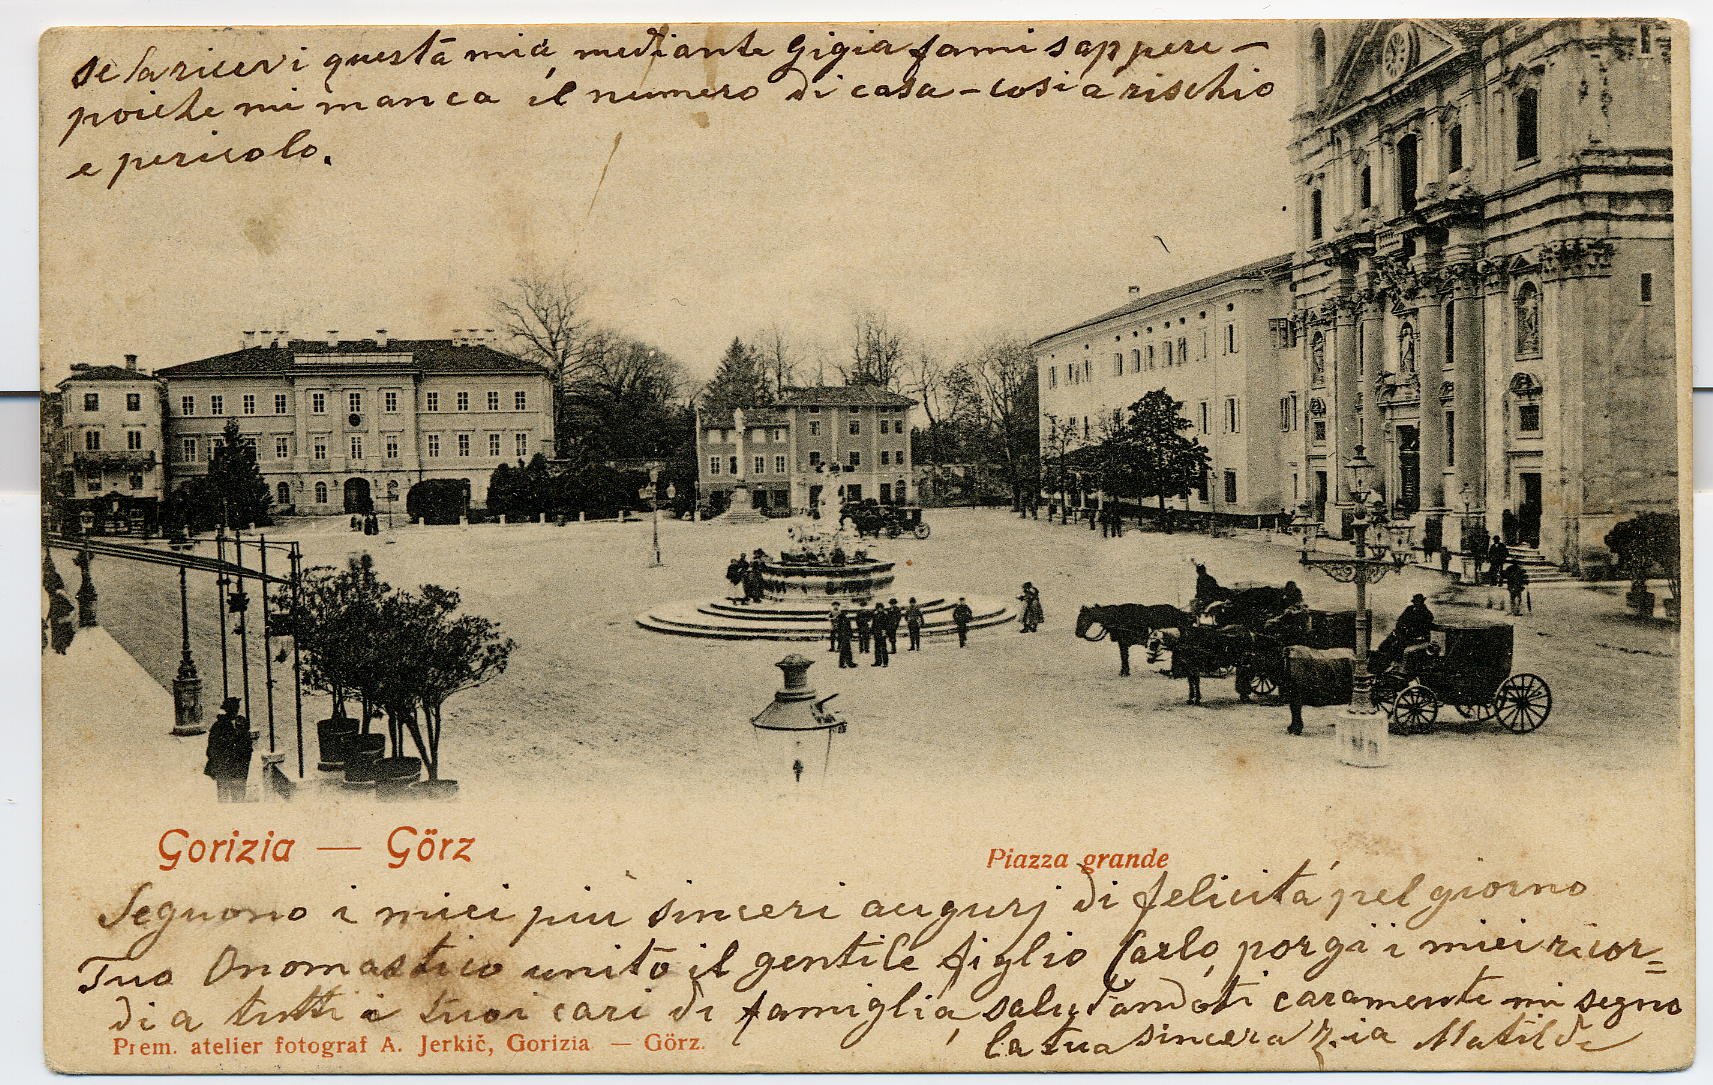 se la ricevi questa mia, mediante Gigia fami sappere –
poiche mi manca il numero di casa – cosi a rischio
e pericolo.
Gorizia — Görz
Piazza grande
Seguono i miei più sinceri augurj di felicità pel giorno
Tuo Onomastico unito il gentile figlio Carlo, porgi i miei ricor=
di a tutti i tuoi cari di famiglia, salutandoti caramente mi segno
la tua sincera zia Matilde
Prem. atelier fotograf A. Jerkič, Gorizia — Görz.